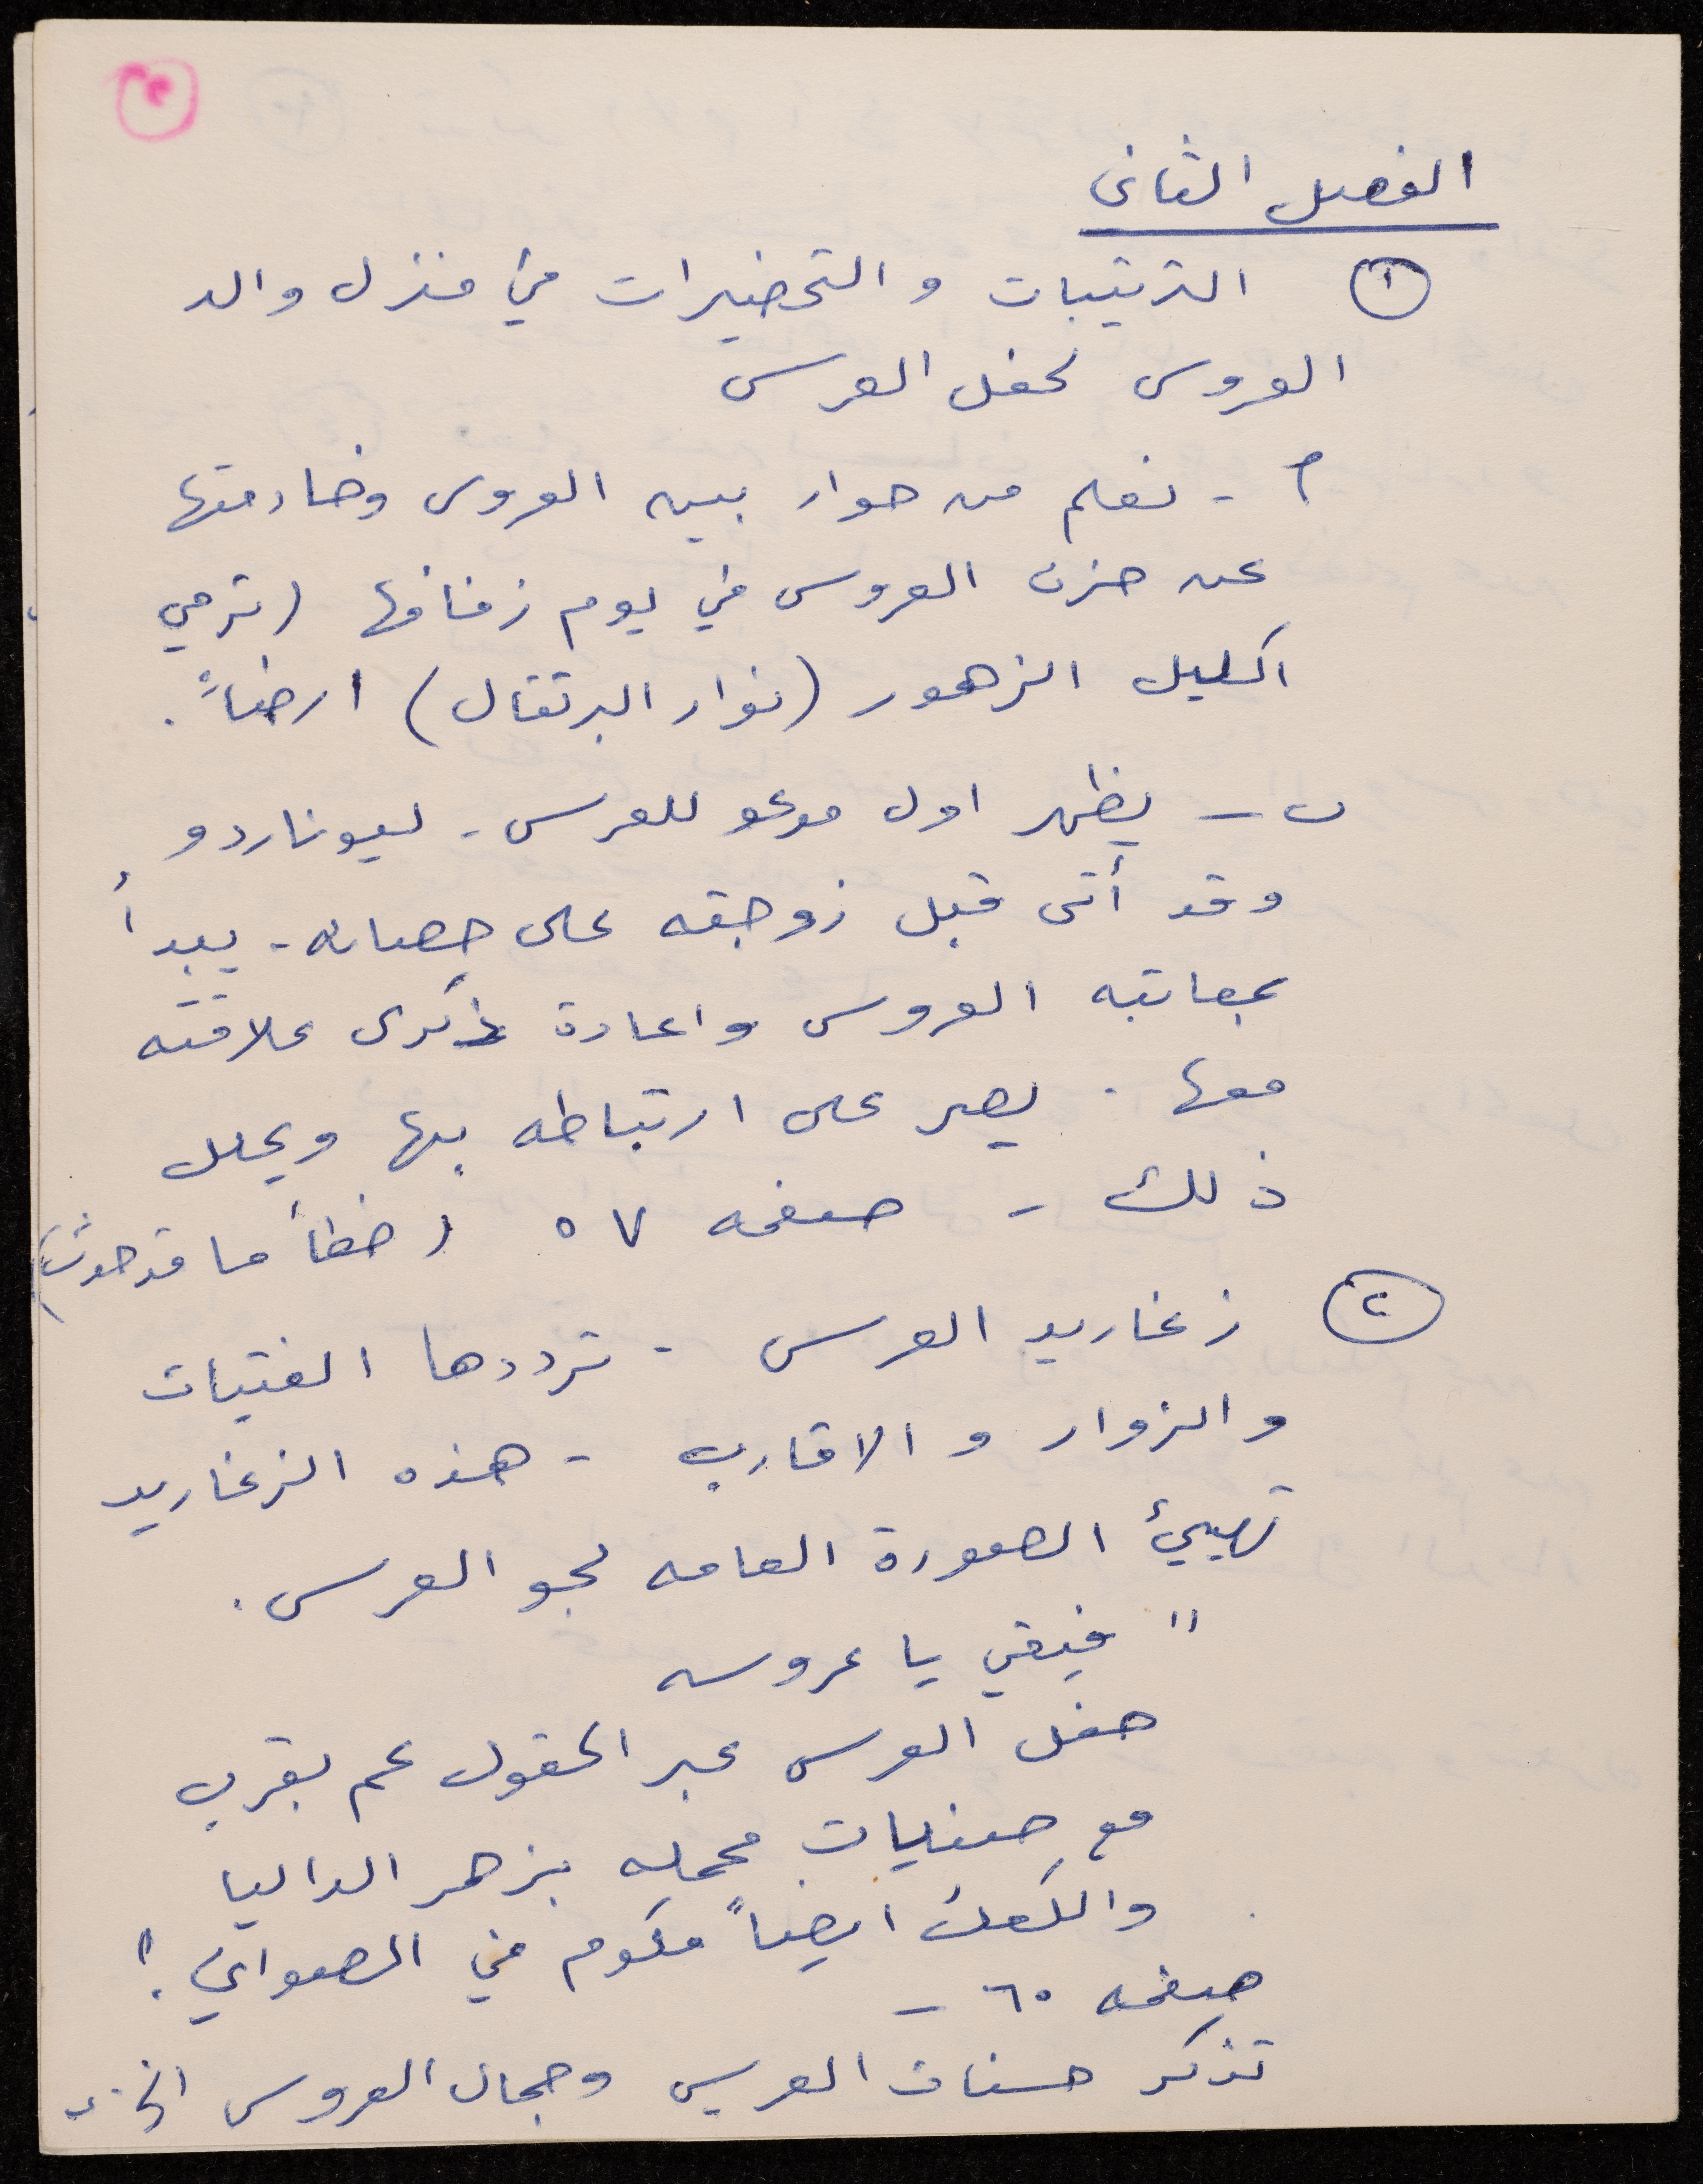 ٣
الفصل الثاني
١ الترتيبات والتحضيرات في منزل والد
العروس لحفل العرس
أ - نعلم من حوار بين العروس وخادمتها
عن حزن العروس في يوم زفافها (ترمي
اكليل الزهور (نوار البرتقال) ارضاً.
ب - يظهر اول مدعو للعرس - ليوناردو
وقد أتى قبل زوجته على حصانه - يبدأ
بمعاتبه العروس واعادة ذكرى علاقته
معها . يصر على ارتباطه بها ويعلل
ذلك - صفحه ٥٧ (خطأ ما قد حدث)
٢ زغاريد العرس - ترددها الفتيات
والزوار والاقارب - هذه الزغاريد
تهيئ الصورة العامه لجو العرس .
" فيقي يا عروسه
حفل العرس عبر الحقول عم بقرب
مع صنيات محمله بزهر الداليا
والكعك ايضاً مكوم في الصواني . "
صفحه ٦٠ -
تذكر حسنات العريس وجمال العروس الخ ..